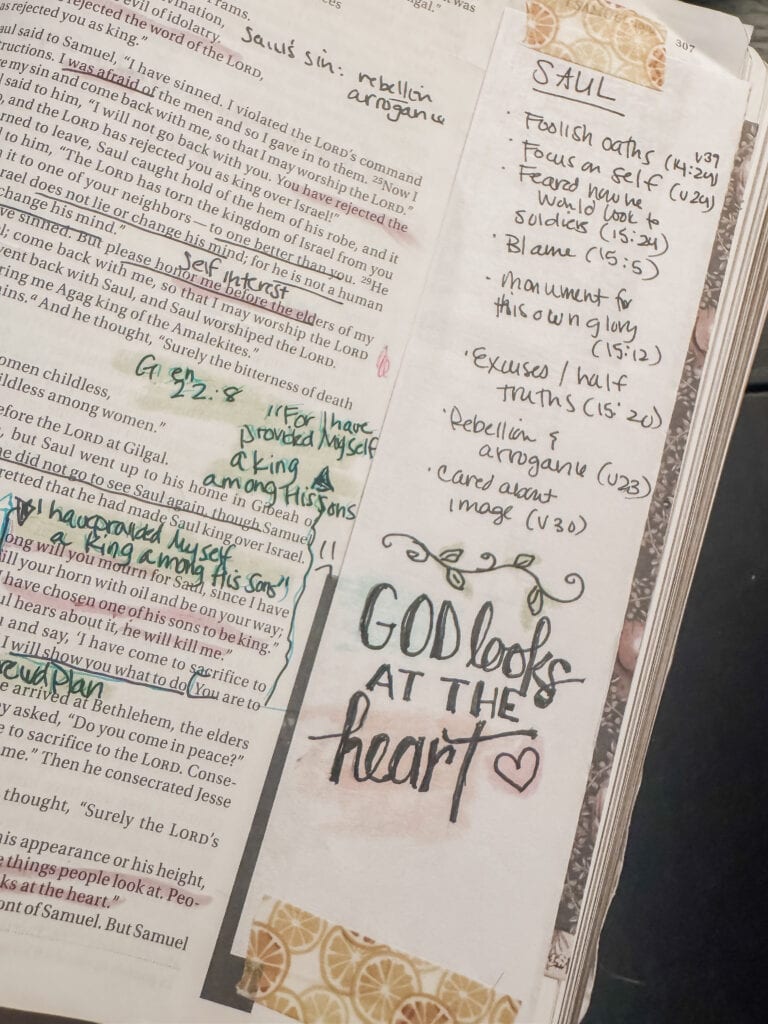 rejected the word of the LORD,
as rejected you as king."
aul said to Samuel, "I have sinned. I violated the LORD's command
tructions. I was afraid of the men and so I gave in to them. ²⁵Now I
e my sin and come back with me, so that I may worship the LORD."
l said to him, "I will not go back with you. You have rejected the
o, and the LORD has rejected you as king over Israel!"
rned to leave, Saul caught hold of the hem of his robe, and it
l to him, "The LORD has torn the kingdom of Israel from you
n it to one of your neighbors—to one better than you. ²⁹He
rael does not lie or change his mind; for he is not a human
change his mind."
ve sinned. But please honor me before the elders of my
el; come back with me, so that I may worship the LORD
went back with Saul, and Saul worshiped the LORD.
ring me Agag king of the Amalekites."
ains.ᵃ And he thought, "Surely the bitterness of death
omen childless,
ildless among women."
efore the LORD at Gilgal.
, but Saul went up to his home in Gibeah o
he did not go to see Saul again, though Samuel
retted that he had made Saul king over Israel.
ong will you mourn for Saul, since I have
ill your horn with oil and be on your way;
I have chosen one of his sons to be king."
ul hears about it, he will kill me."
u and say, 'I have come to sacrifice to
I will show you what to do. You are to
e arrived at Bethlehem, the elders
y asked, "Do you come in peace?"
e to sacrifice to the LORD. Conse-
me." Then he consecrated Jesse
thought, "Surely the LORD's
is appearance or his height,
e things people look at. Peo-
ks at the heart."
ont of Samuel. But Samuel
Saul's sin: rebellion
arrogance
Self interest
Gen
22:8
"For I have
provided Myself
a king
among His sons
"I have provided Myself
a king among His sons"
rewd plan
307
SAUL
· Foolish oaths (14:24) v39
· Focus on self (v24)
· Feared how he
would look to
soldiers (15:24)
· Blame (15:5)
· monument for
this own glory
(15:12)
· Excuses / half
truths (15:20)
· Rebellion &
arrogance (v23)
· Cared about
image (v30)
GOD looks
AT THE
heart ♡